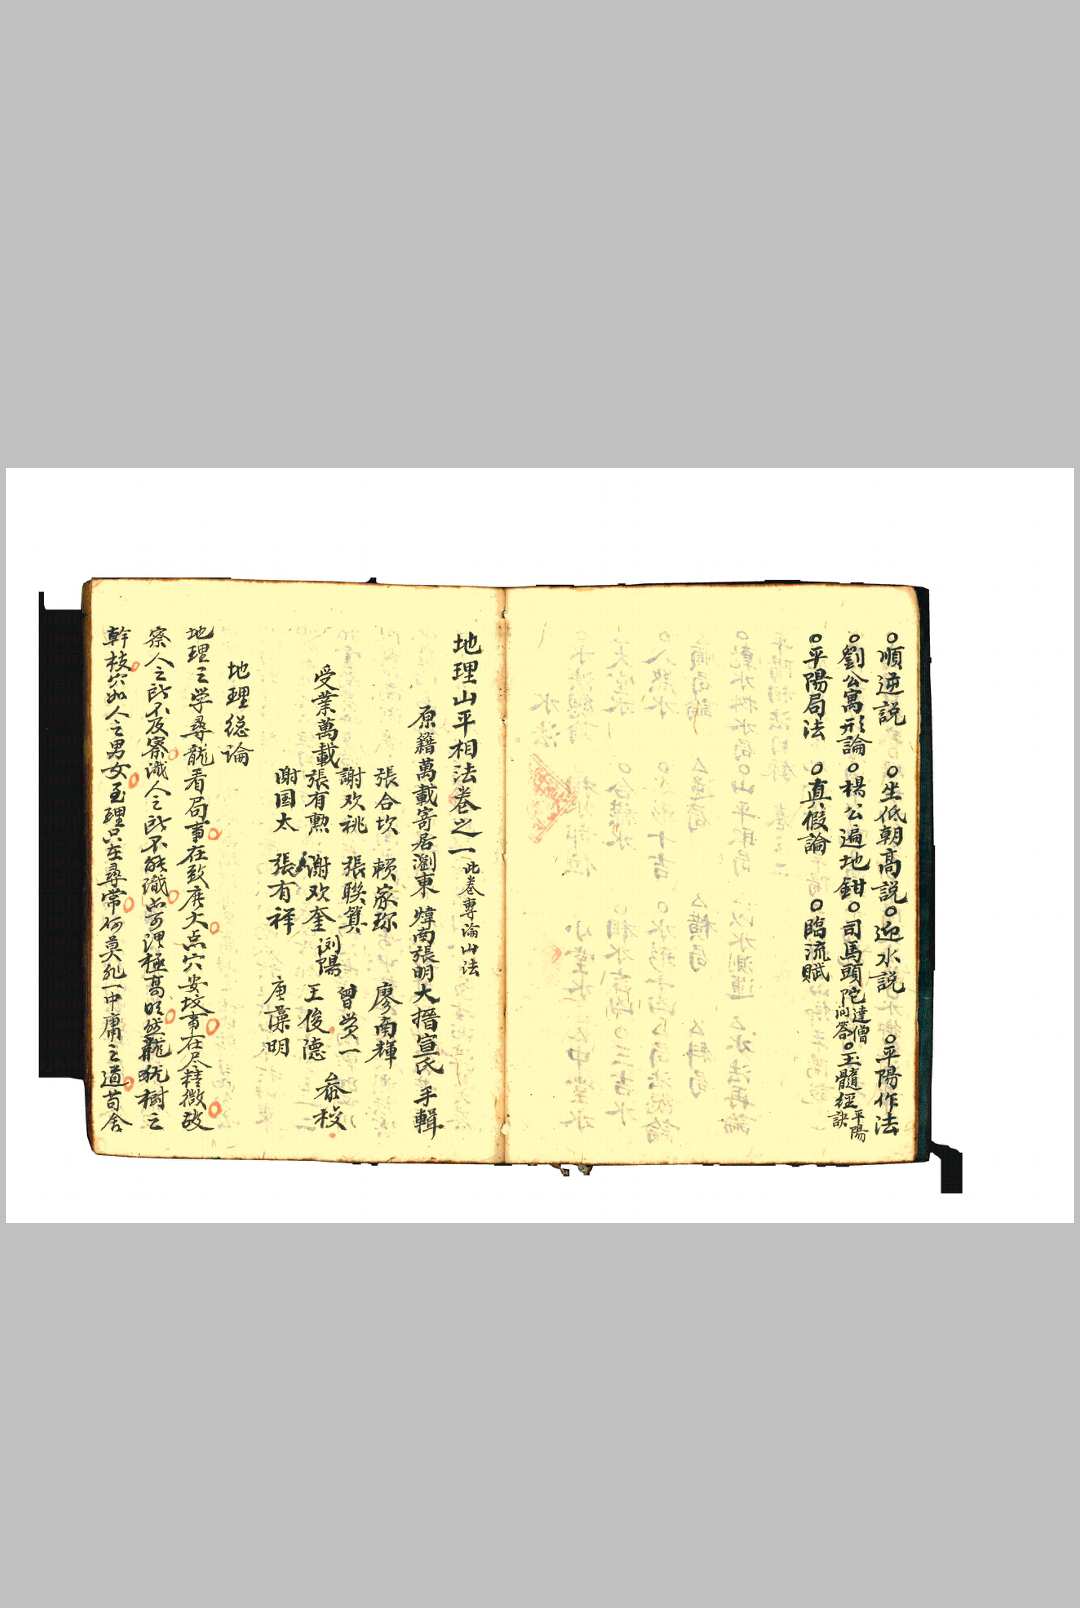 ○順逆説　○坐低朝高説○迎水説　○平陽作法
○劉公寓形論○楊公遍地鉗○司馬頭陀達僧問答○玉髓經平陽訣
○平陽局法　○真假論　○臨流賦
地理山平相法卷之一此卷專論山法
原籍萬載寄居瀏東 煒南張明大搢宣氏 手輯
張合坎　賴家珎　廖南輝
謝欢祧　張聯箕　曾奠一
受業萬載　瀏陽　叅校
張有勲　謝欢奎　王俊德
謝国太　張有祥　唐藻明
地理總論
地理之学尋龍看局事在致廣大点穴安坟事在尽精微故
察人之所不及察識人之所不能識尚可谓極高明然龍犹樹之
幹枝穴如人之男女至理只在尋常何莫非一中庸之道苟舍